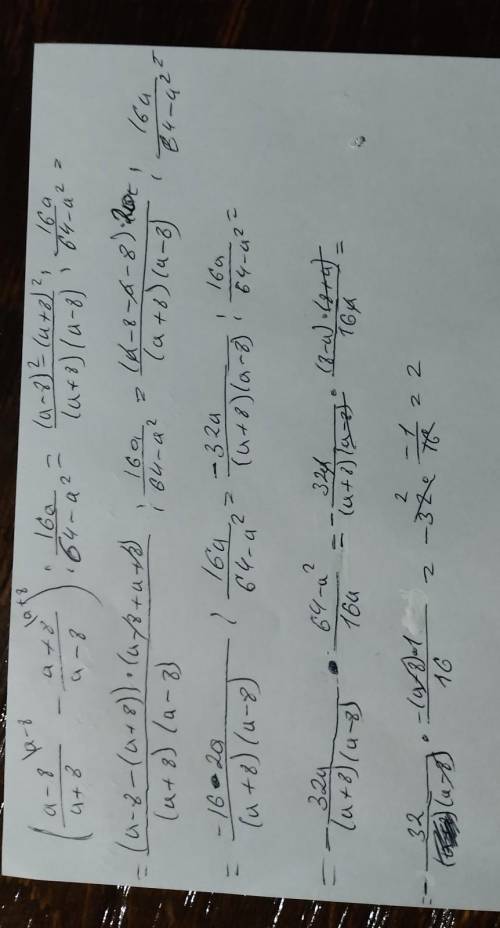 (a-8\a-8/a+8 - a+8\a+8/a-8) : 16a/64-a² = (a-8)²-(a+8)²/(a+8)(a-8) : 16a/64-a² =
= (a-8-(a+8))·(a-8+a+8)/(a+8)(a-8) : 16a/64-a² = (a-8-a-8)·2a/(a+8)(a-8) : 16a/64-a² =
= -16·2a/(a+8)(a-8) : 16a/64-a² = -32a/(a+8)(a-8) : 16a/64-a² =
= -32a/(a+8)(a-8) · 64-a²/16a = -32a/(a+8)(a-8) · (8-a)·(8+a)/16a =
= -32/(a-8) · -(a-8)·1/16 = -32 · -1/16 = 2